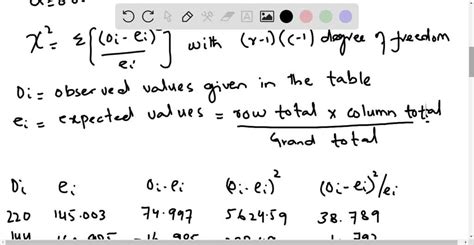 χ² = Σ[(Oi - ei)²/ei] with (r-1)(c-1) degree of freedom
Oi = observed values given in the table
ei = expected values = row total × column total
Grand total
Oi ei Oi-ei (Oi-ei)² (Oi-ei)²/ei
220 145.003 74.997 5624.59 38.789